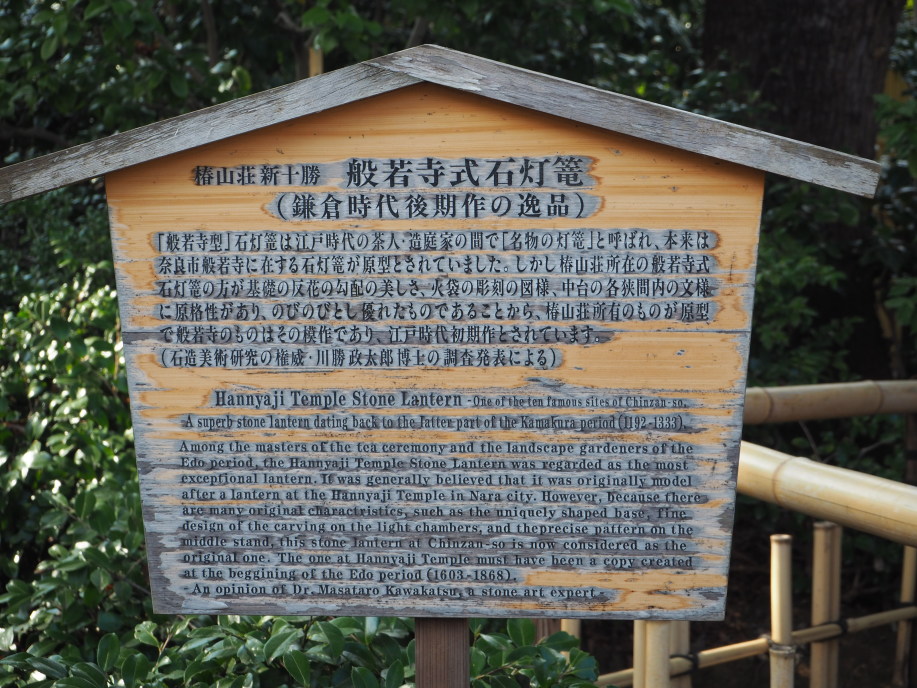 椿山荘新十勝 般若寺式石灯篭
（鎌倉時代後期作の逸品）
「般若寺型」石灯篭は江戸時代の茶人・造庭家の間で「名物の灯篭」と呼ばれ、本来は
奈良市般若寺に在する石灯篭が原型とされていました。しかし椿山荘所在の般若寺式
石灯篭の方が基礎の反花の勾配の美しさ、火袋の彫刻の図様、中台の各狭間内の文様
に原格性があり、のびのびとし優れたものであることから、椿山荘所有のものが原型
で般若寺のものはその模作であり、江戸時代初期作とされています。
（石造美術研究の権威・川勝政太郎博士の調査発表による）
Hannyaji Temple Stone Lantern -One of the ten famous sites of Chinzan-so.
A superb stone lantern dating back to the latter part of the Kamakura period (1192-1333).
Among the masters of the tea ceremony and the landscape gardeners of the
Edo period, the Hannyaji Temple Stone Lantern was regarded as the most
exceptional lantern. It was generally believed that it was originally model
after a lantern at the Hannyaji Temple in Nara city. However, because there
are many original charactristics, such as the uniquely shaped base, fine
design of the carving on the light chambers, and theprecise pattern on the
middle stand, this stone lantern at Chinzan-so is now considered as the
original one. The one at Hannyaji Temple must have been a copy created
at the beggining of the Edo period (1603-1868).
-An opinion of Dr. Masataro Kawakatsu, a stone art expert.-